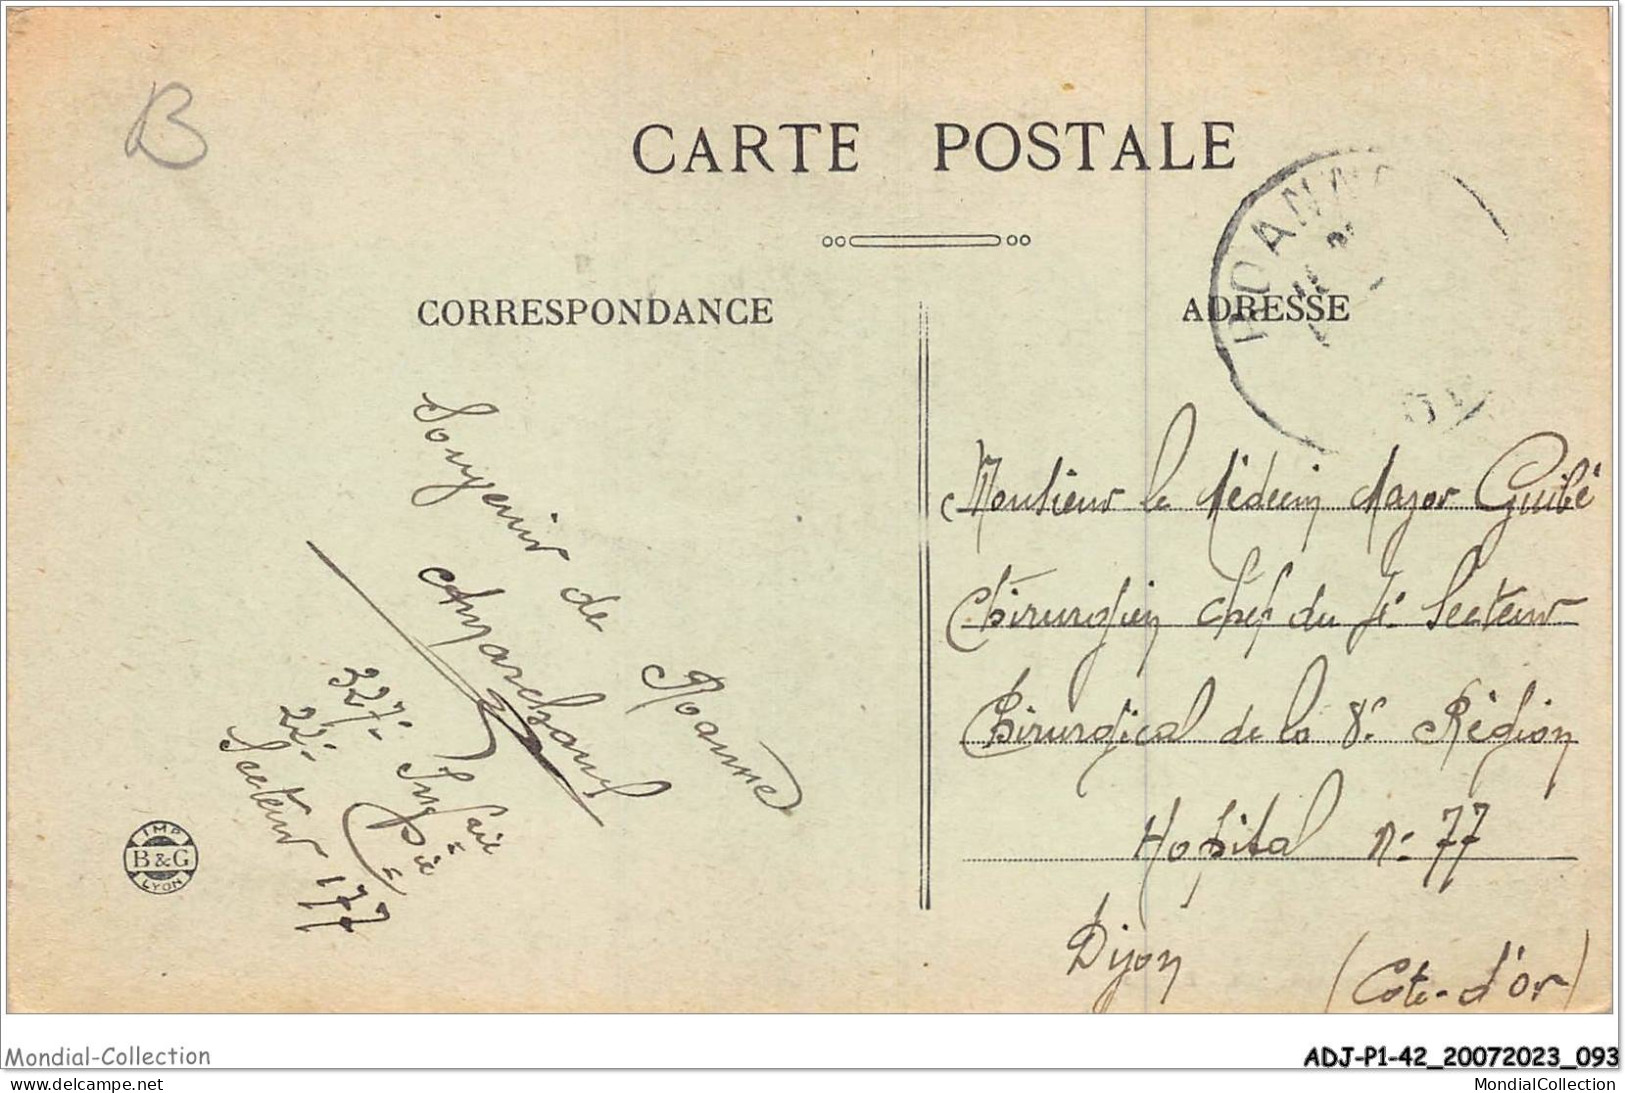 B
CARTE POSTALE
ROANNE
CORRESPONDANCE
ADRESSE
Souvenir de Roanne
AMarchand
327e Inf=rie
22e Cie
Secteur 177
IMP
B & G
LYON
Monsieur le Médecin Major Guibé
Chirurgien Chef du 1e Secteur
Chirurgical de la 8e Région
Hopital No 77
Dijon (Cote-d'or)
Mondial-Collection
ADJ-P1-42_20072023_093
delcampe.net
MondialCollection